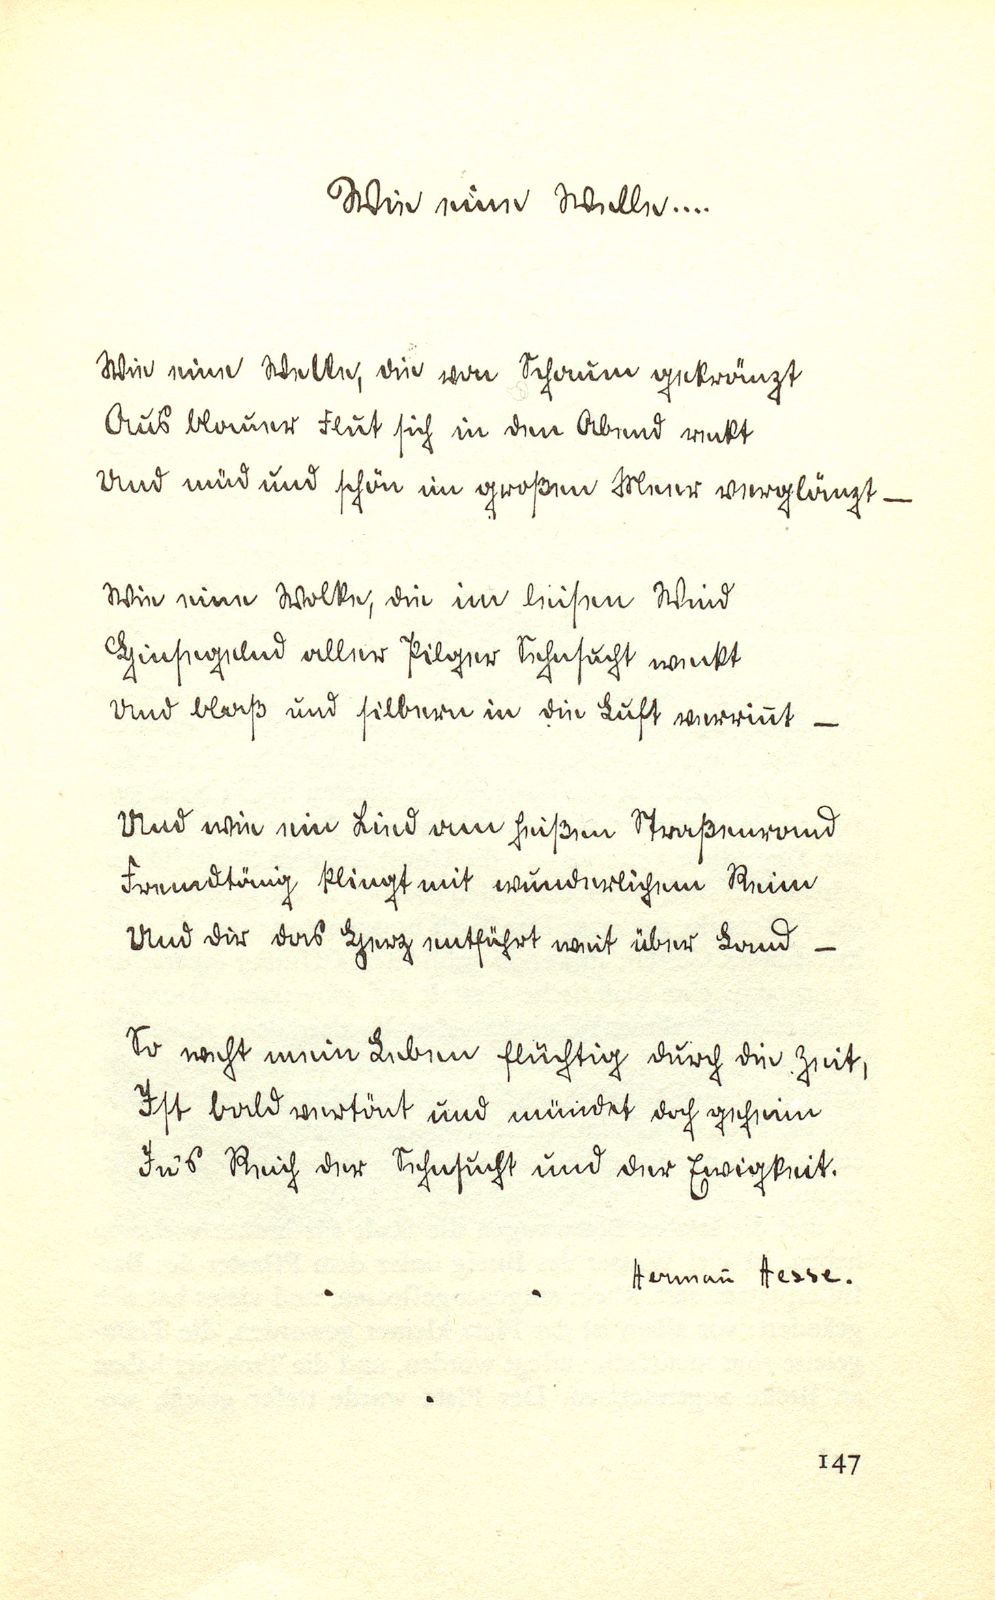 Wie eine Welle....
Wie eine Welle, die von Schaum gekränzt
Aus blauer Flut sich in den Abend reckt
Und müd und schön im großen Meer verglänzt —
Wie eine Wolke, die im leisen Wind
Hinsegelnd aller Pilger Sehnsucht weckt
Und blaß und silbern in die Luft verrin̄t —
Und wie ein Lied am heißen Straßenrand
Fremdtönig klingt mit wunderlichem Reim
Und dir das Herz entführt weit über Land —
So weht mein Leben flüchtig durch die Zeit,
Ist bald vertönt und mündet doch geheim
In's Reich der Sehnsucht und der Ewigkeit.
Herman̄ Hesse.
147